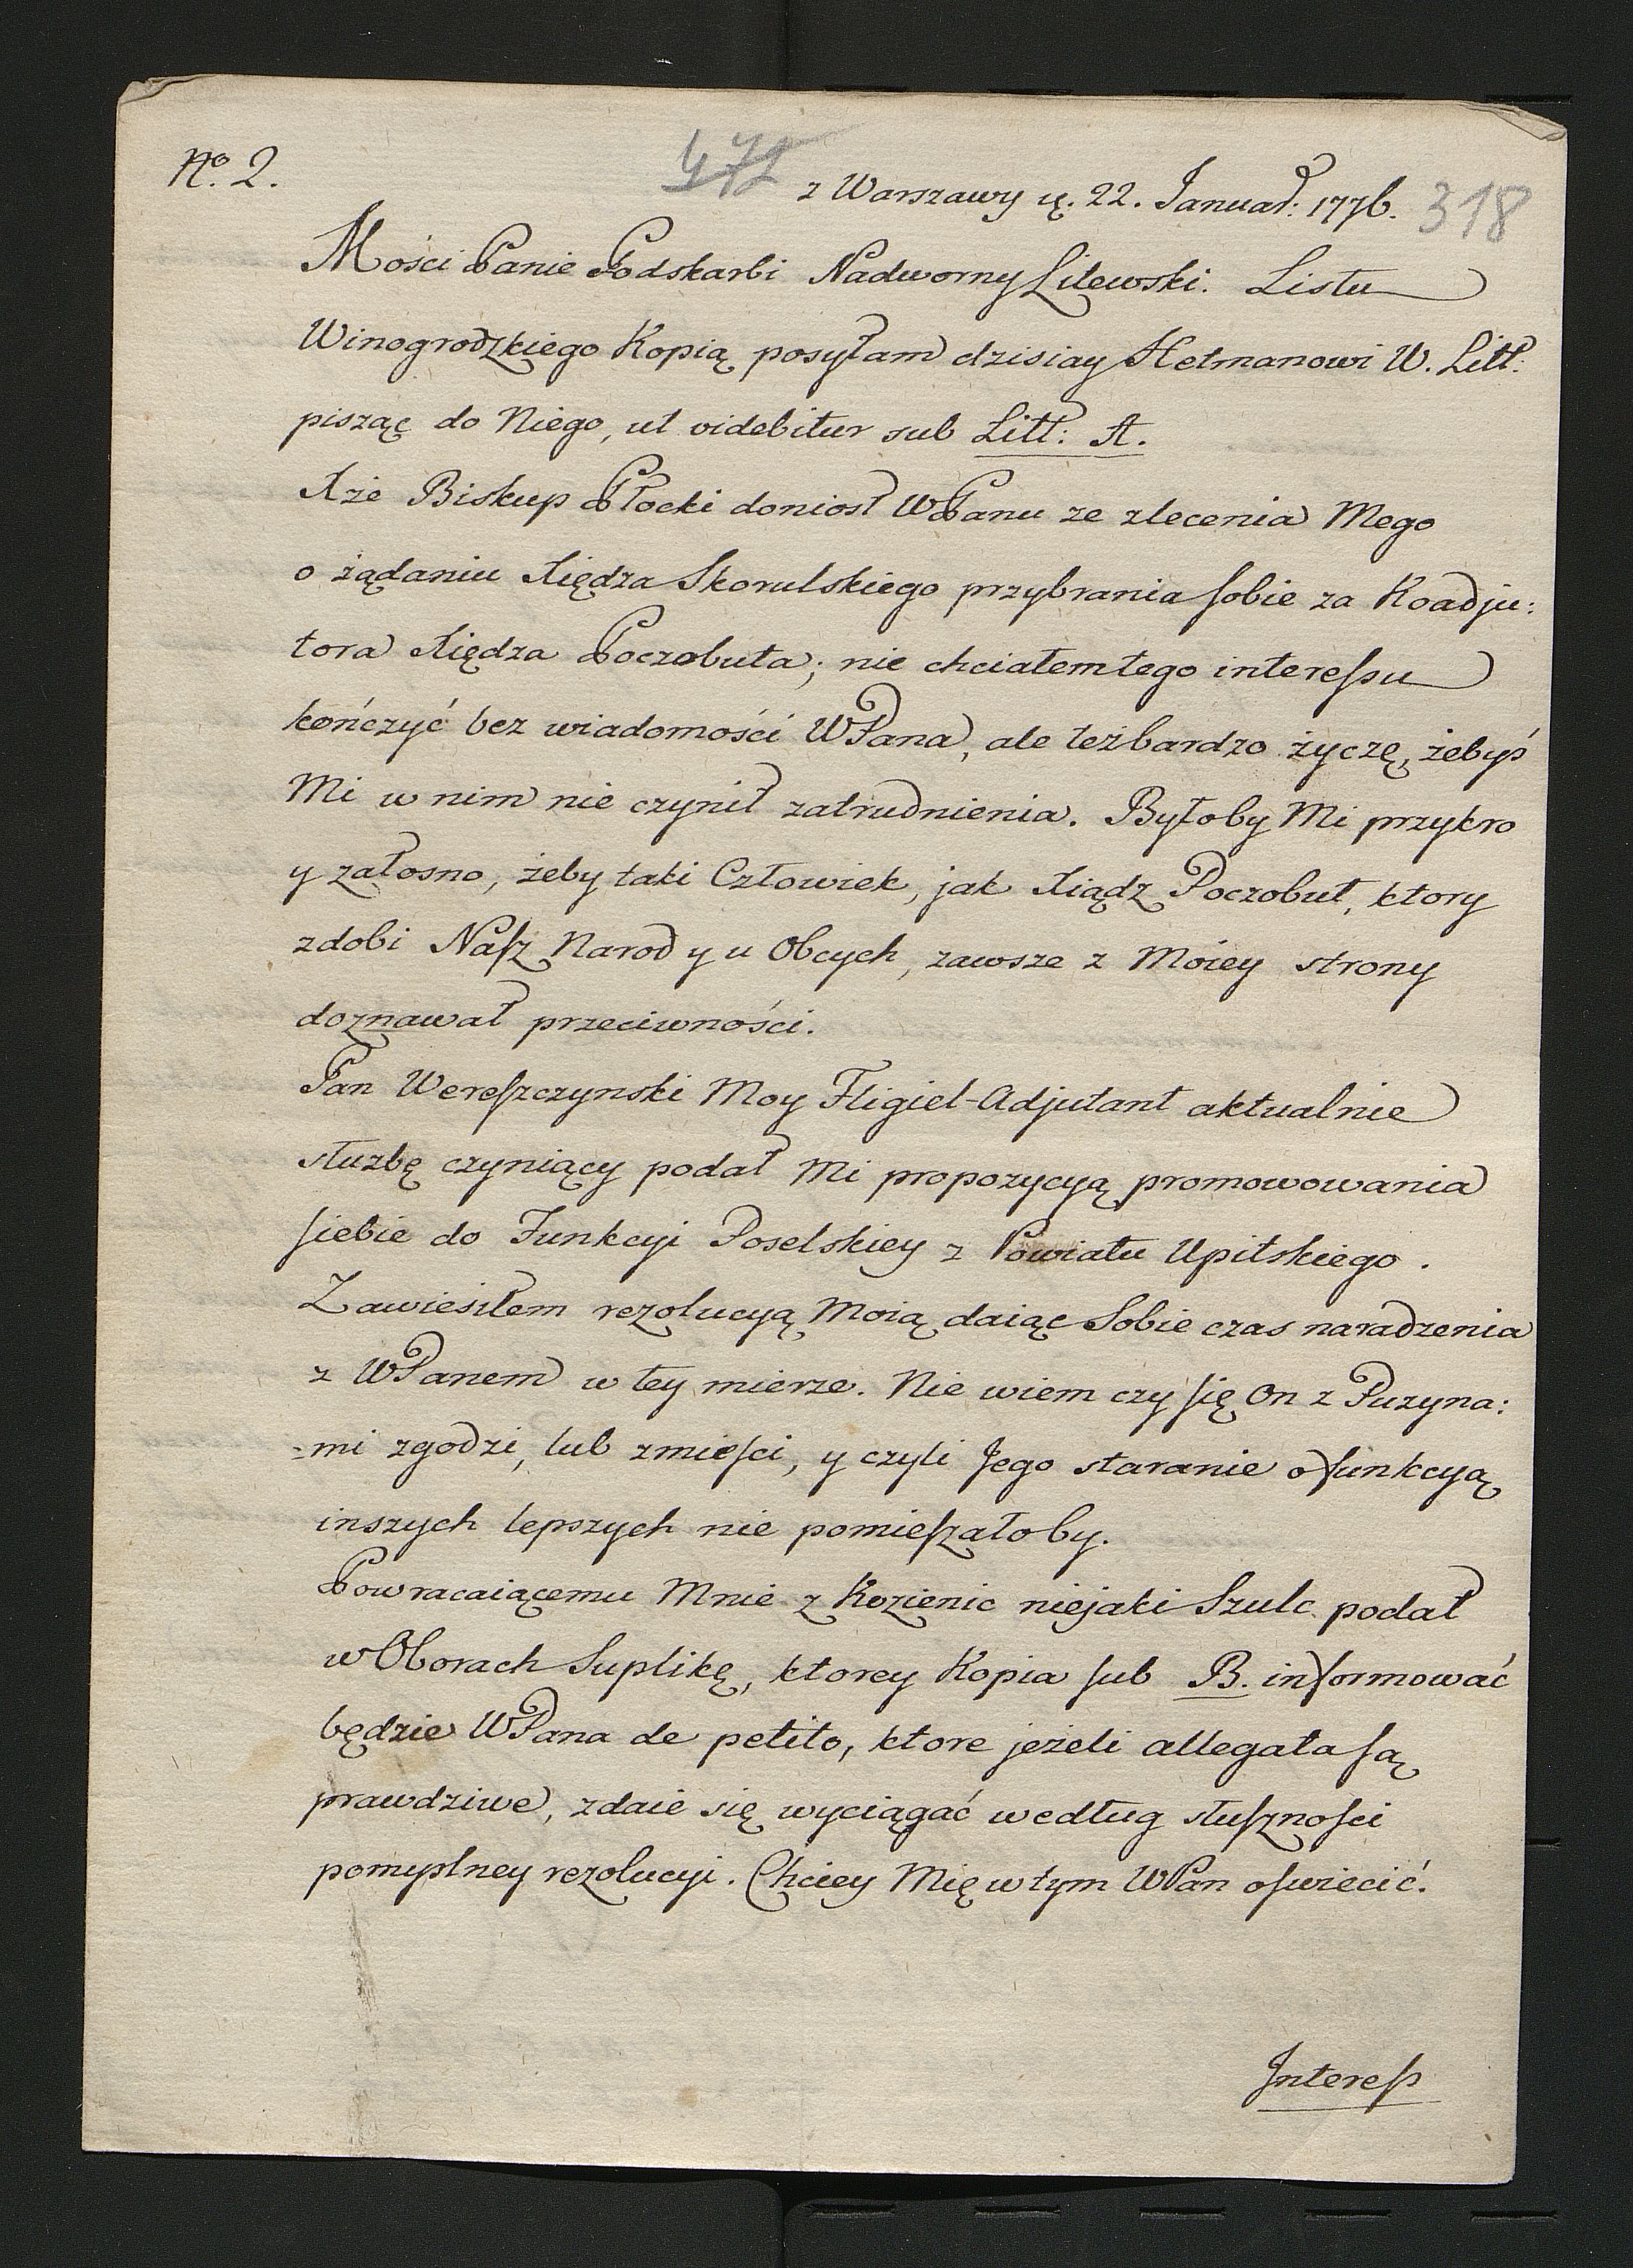 No. 2.
471
318
z Warszawy d. 22. Januar: 1776.
Mości Panie Podskarbi Nadworny Litewski. Listu
Winogrodzkiego Kopią posyłam dzisiay Hetmanowi W. Litt:
pisząc do Niego, ut videbitur sub Litt: A.
Xże Biskup Płocki doniosł WPanu ze zlecenia Mego
o żądaniu Xiędza Skorulskiego przybrania sobie za Koadju:
tora Xiędza Poczobuta; nie chciałem tego interessu
kończyć bez wiadomości WPana, ale też bardzo życzę, żebyś
Mi w nim nie czynił zatrudnienia. Byłoby Mi przykro
y załosno, żeby taki Człowiek, jak Xiądz Poczobut, ktory
zdobi Nasz Narod y u Obcych, zawsze z Moiey strony
doznawał przeciwności.
Pan Wereszczynski Moy Fligiel-Adjutant aktualnie
służbę czyniący podał Mi propozycyą promowowania
siebie do Funkcyi Poselskiey z Powiatu Upitskiego.
Zawiesiłem rezolucyą Moią daiąc Sobie czas naradzenia
z WPanem w tey mierze. Nie wiem czy się On z Puzyna:
=mi zgodzi, lub zmieści, y czyli Jego staranie o funkcyą
inszych lepszych nie pomieszałoby.
Powracaiącemu Mnie z Kozienic niejaki Szulc podał
w Oborach Suplikę, ktorey Kopia sub B. informować
będzie WPana de petito, ktore jeżeli allegata są
prawdziwe, zdaie się wyciągać według słuszności
pomyślney rezolucyi. Chciey Mię w tym WPan oświecić.
Interess